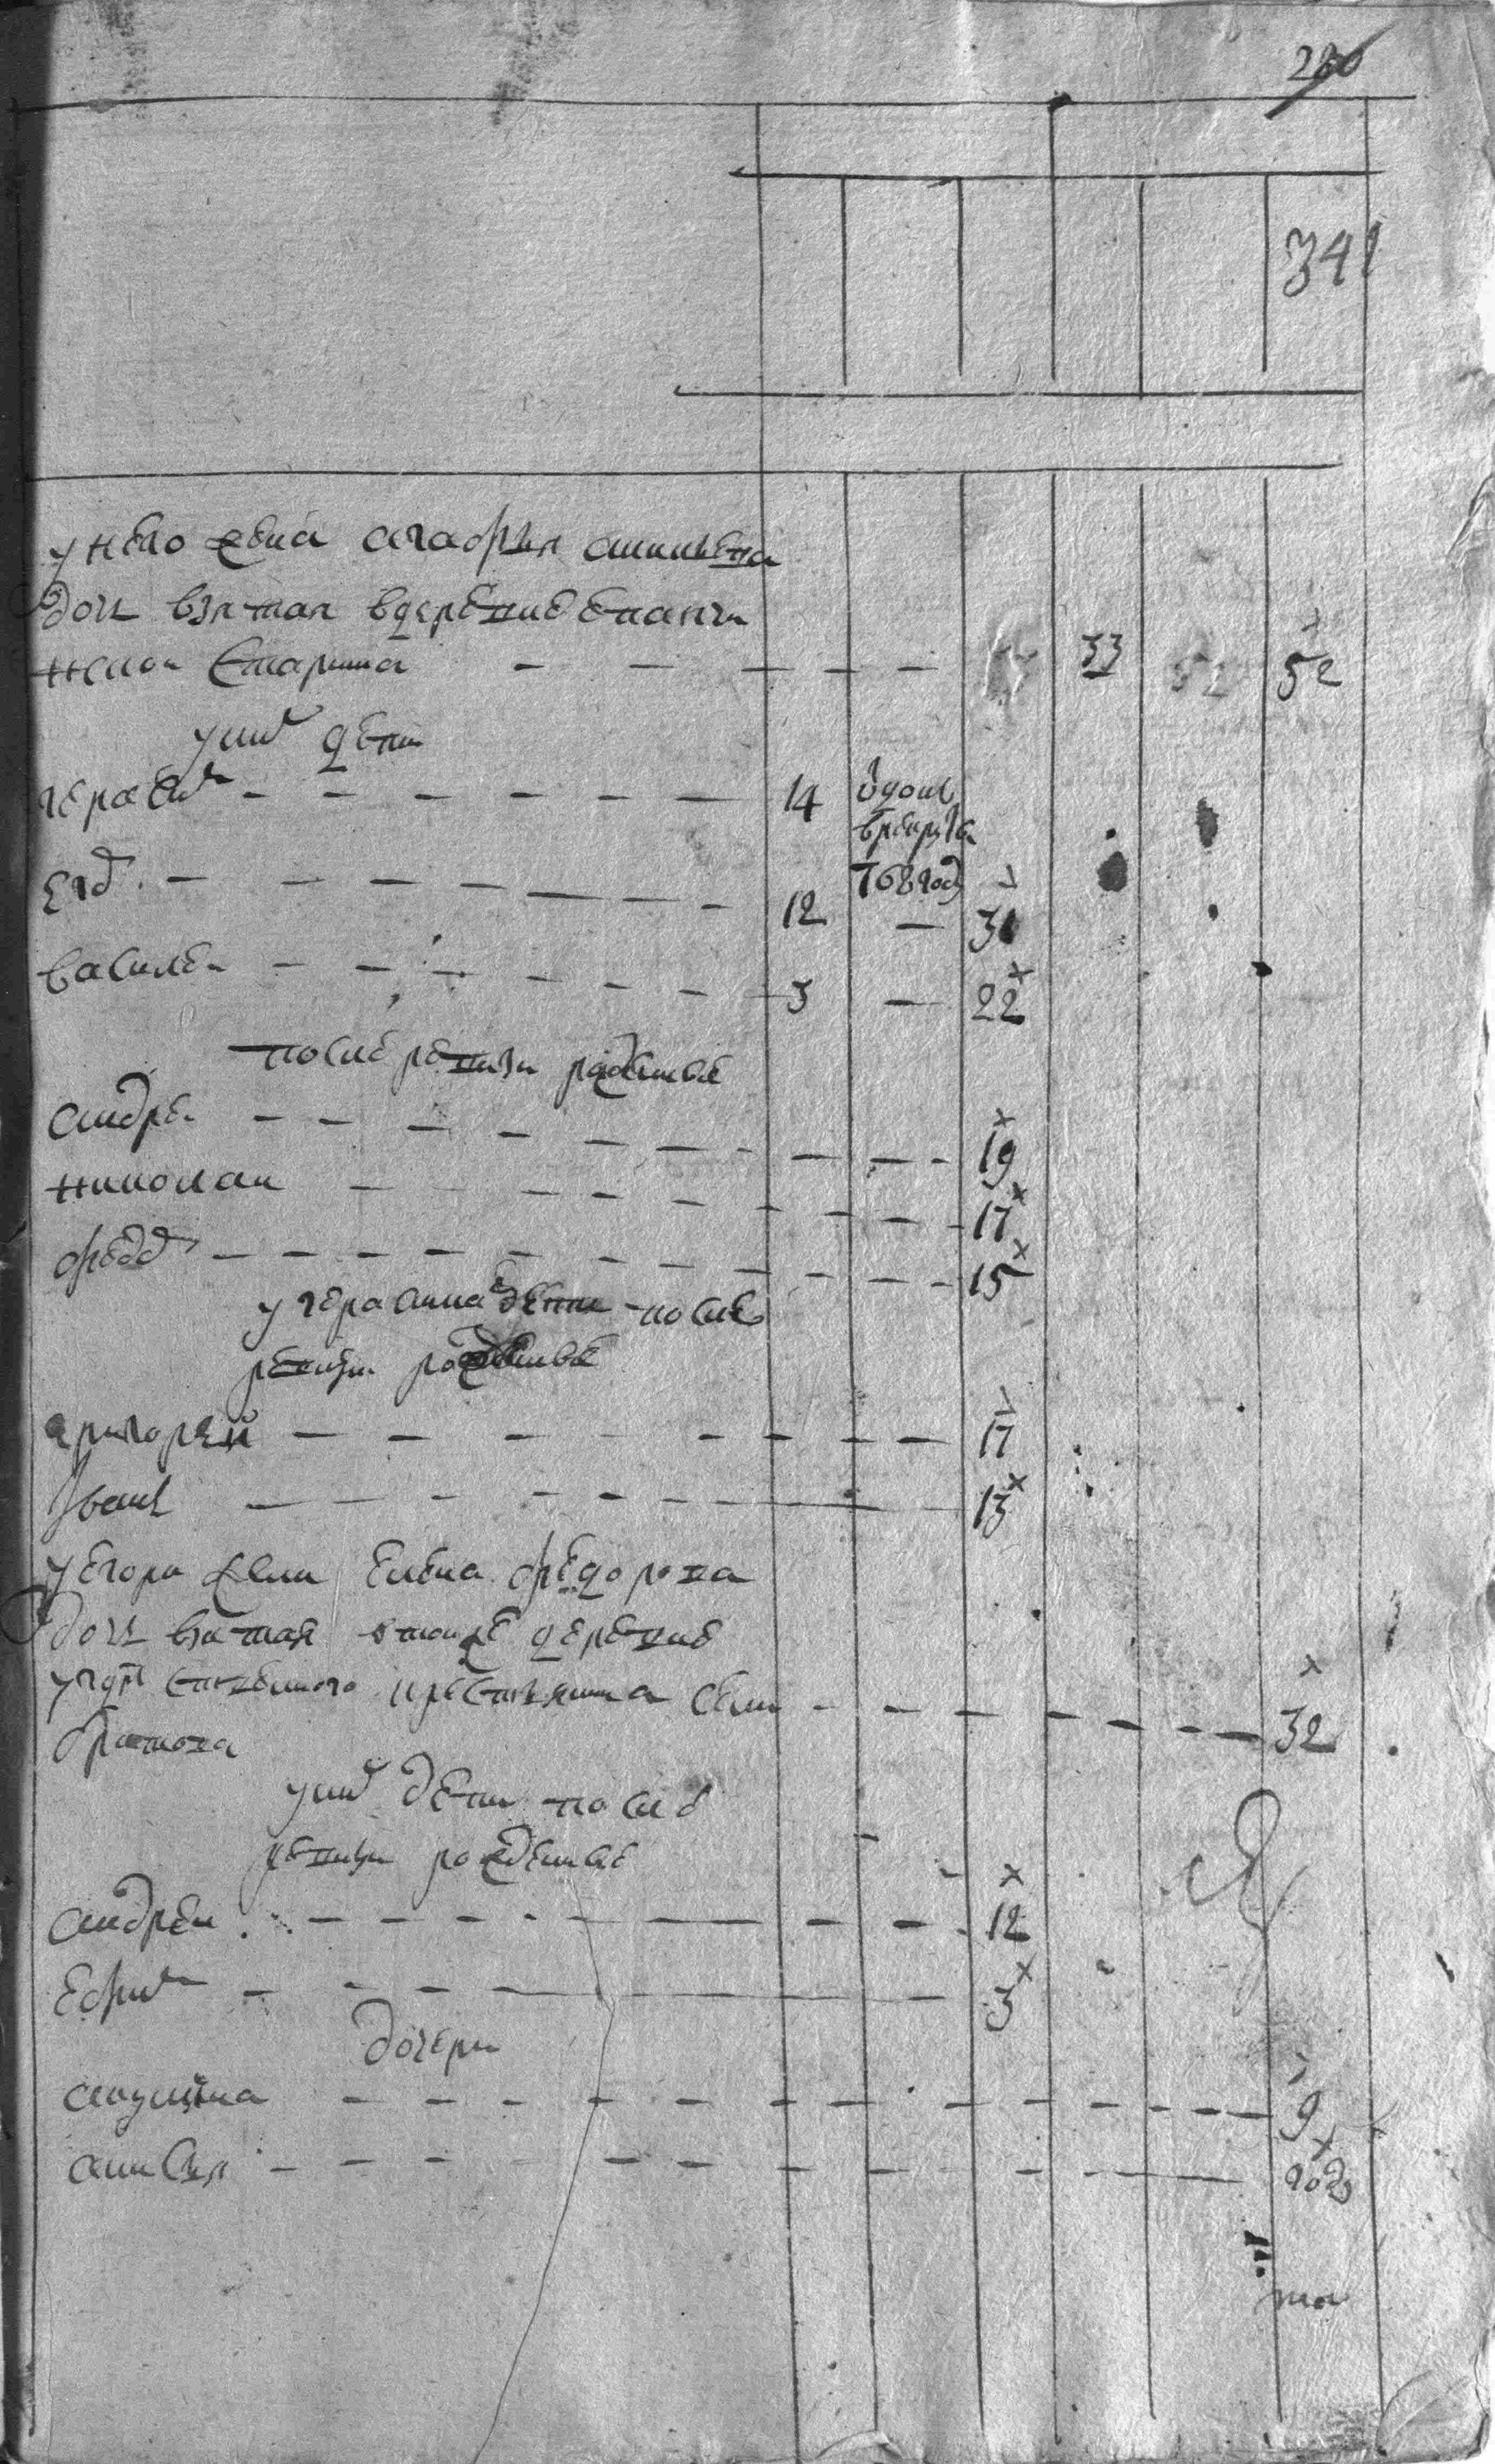 280
341
у него жена агафья
дочь взятая в деревне епанчи
ной старинная — — — — — 33 52
у них дети
герасим — — — — — — 14 отданъ в рекруты 768 году
егор — — — — — — 12 — 31
василей — — — — — — 3 — 22
после ревизи рожденные
андрей — — — — — — — — 19
николай — — — — — — — — 17
федор — — — — — — — — — 15
у герасима дети после
ревизи рожденные
григорей — — — — — — — 17
Иванъ — — — — — — — 13
у егора жена елена федорова
дочь взятая в той же деревне
у крестьянина
— — — — — — 32
у них дети после
ревизи рожденные
андрей — — — — — — — — 12
ефим — — — — — — 3
дочери
— — — — — — — — — — — 9
анисья — — — — — — — — — — годъ